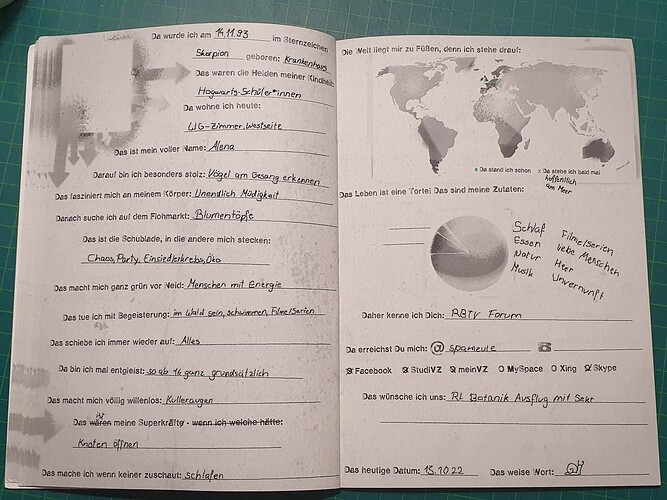 Da wurde ich am 14.11.93 im Sternzeichen
Skorpion geboren: Krankenhaus
Das waren die Helden meiner Kindheit:
Hogwarts-Schüler*innen
Da wohne ich heute:
WG-Zimmer, Westseite
Das ist mein voller Name: Alena
Darauf bin ich besonders stolz: Vögel am Gesang erkennen
Das fasziniert mich an meinem Körper: Unendlich Müdigkeit
Danach suche ich auf dem Flohmarkt: Blumentöpfe
Das ist die Schublade, in die andere mich stecken:
Chaos, Party, Einsiedlerkrebs, Öko
Das macht mich ganz grün vor Neid: Menschen mit Energie
Das tue ich mit Begeisterung: im Wald sein, schwimmen, Filme/Serien
Das schiebe ich immer wieder auf: Alles
Da bin ich mal entgleist: so ab 16 ganz grundsätzlich
Das macht mich völlig willenlos: Kulleraugen
Das wären ist meine Superkräfte - wenn ich welche hätte:
Knoten öffnen
Das mache ich wenn keiner zuschaut: schlafen
Die Welt liegt mir zu Füßen, denn ich stehe drauf:
x Da stand ich schon o Da stehe ich bald mal
hoffentlich
am Meer
Das Leben ist eine Torte! Das sind meine Zutaten:
Schlaf
Essen
Natur
Musik
Filme/Serien
liebe Menschen
Meer
Unvernunft
Daher kenne ich Dich: RBTV Forum
Da erreichst Du mich: @ spameule
Facebook StudiVZ meinVZ MySpace Xing Skype
Das wünsche ich uns: RL Botanik Ausflug mit Sekt
Das heutige Datum: 13.10.22 Das weise Wort: